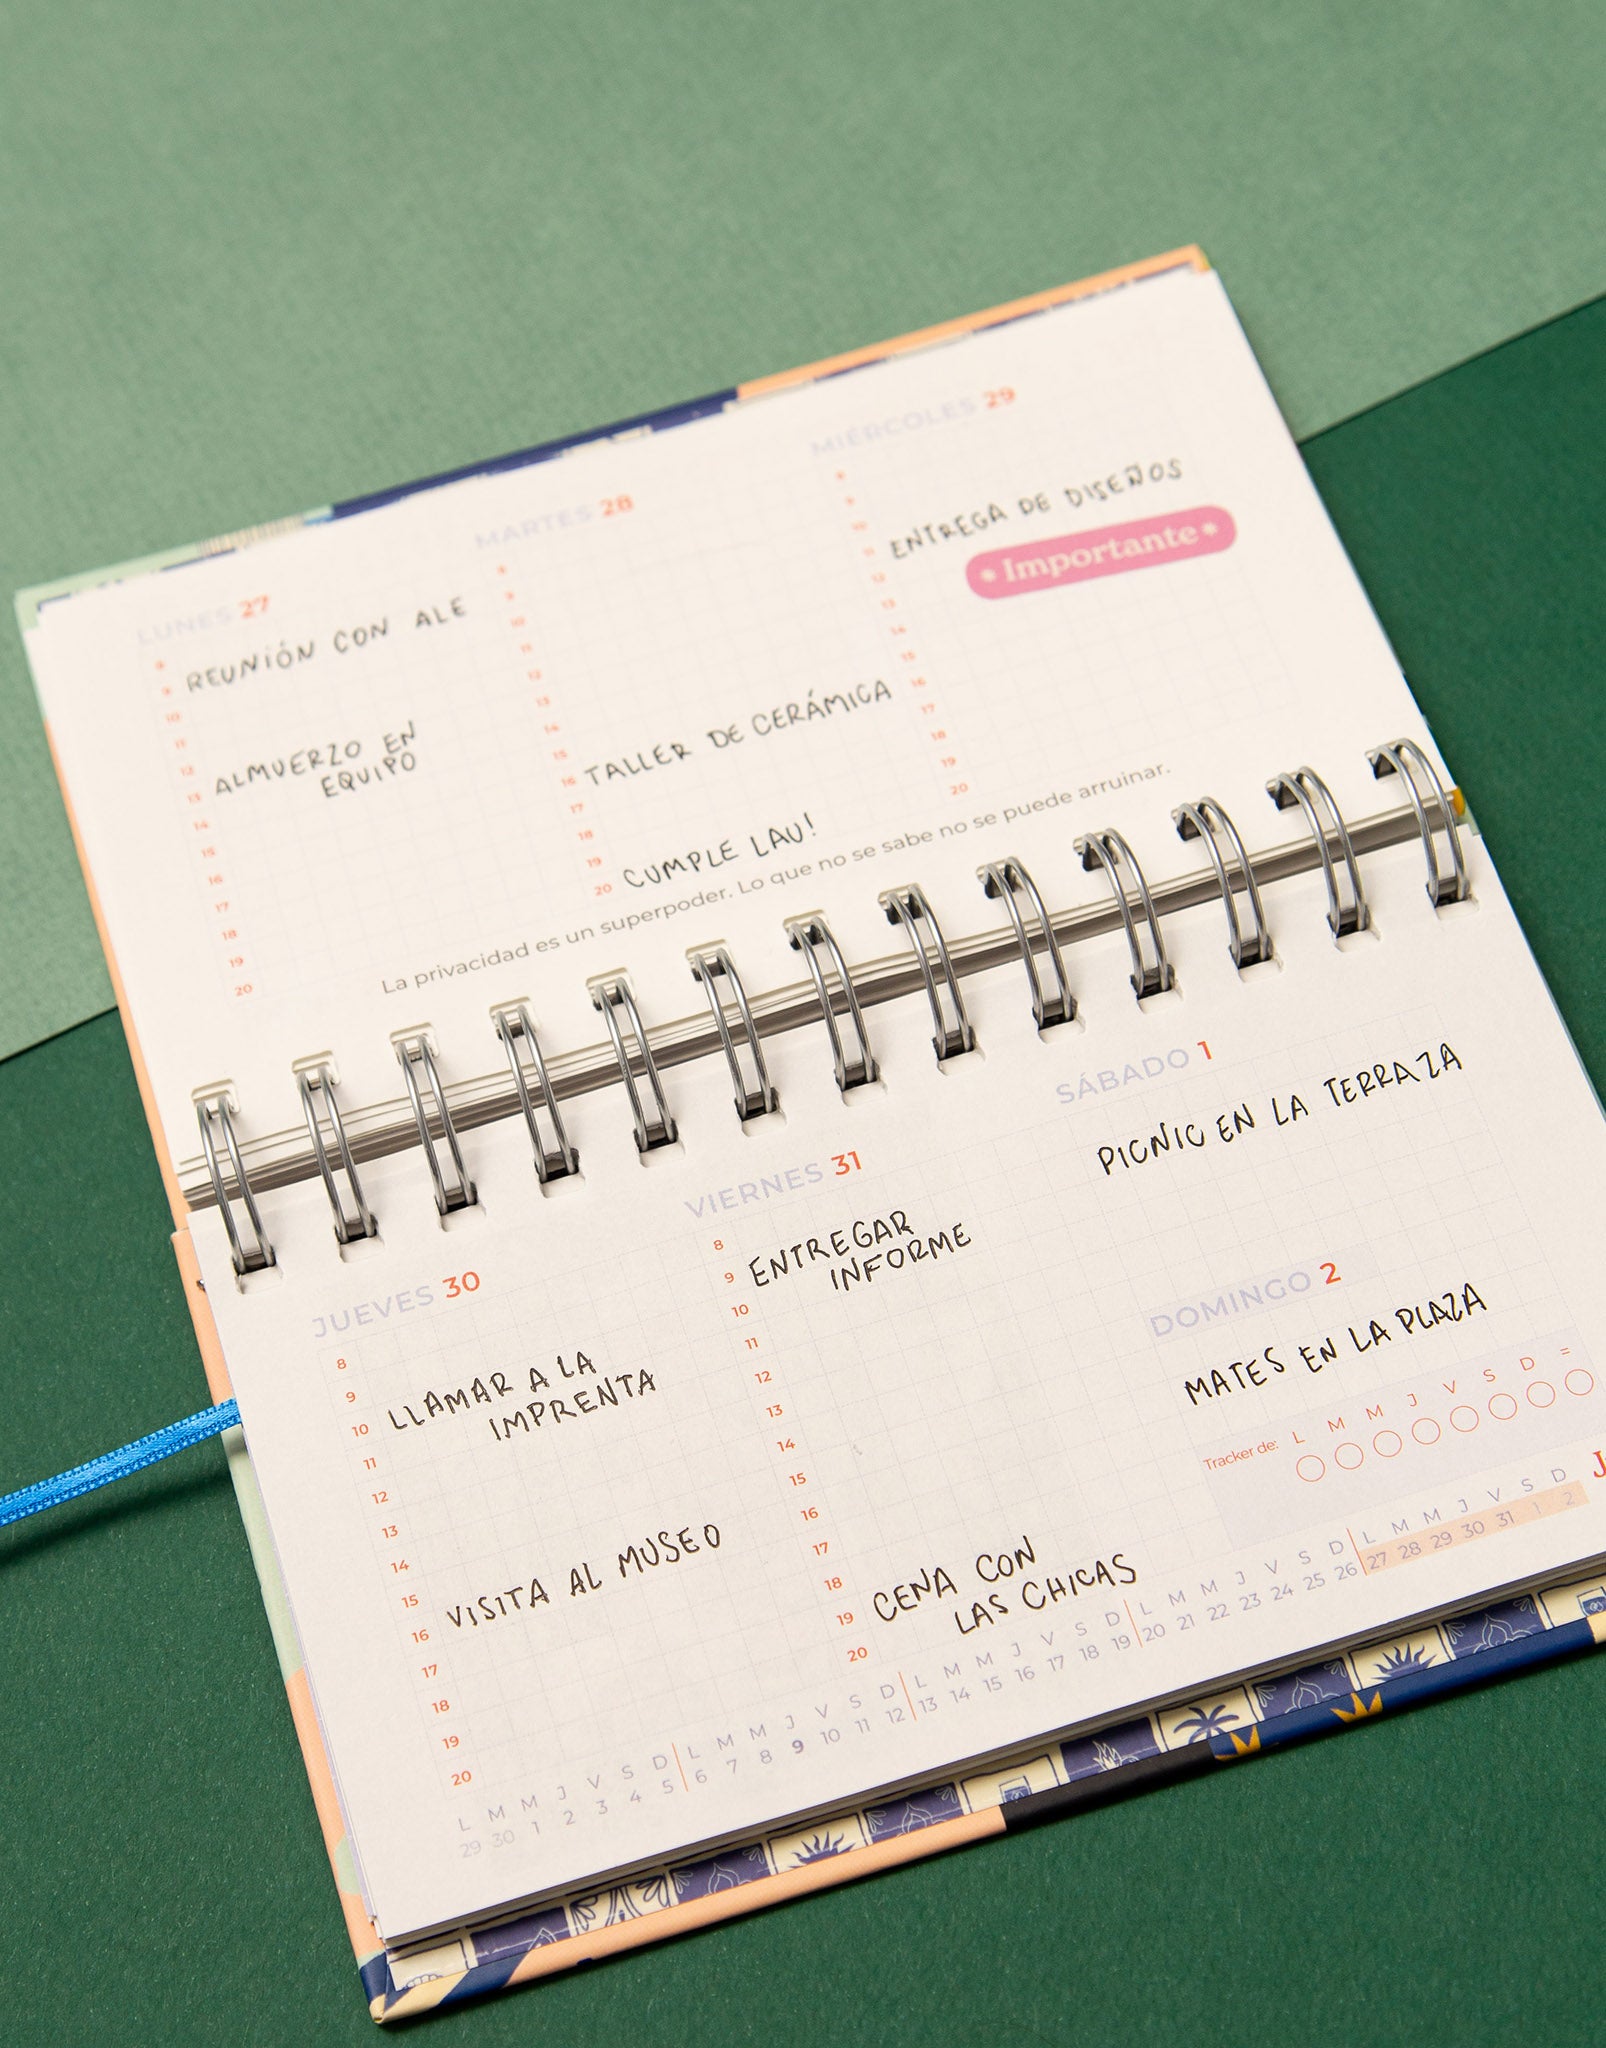 LUNES 27
8
9
REUNIÓN CON ALE
10
11
12
13
ALMUERZO EN
EQUIPO
14
15
16
17
18
19
20
MARTES 28
8
9
10
11
12
13
14
15
16
TALLER DE CERÁMICA
17
18
19
20
CUMPLE LAU!
MIÉRCOLES 29
8
9
10
11
ENTREGA DE DISEÑOS
* Importante *
12
13
14
15
16
17
18
19
20
La privacidad es un superpoder. Lo que no se sabe no se puede arruinar.
JUEVES 30
8
9
10
LLAMAR A LA
IMPRENTA
11
12
13
14
15
16
VISITA AL MUSEO
17
18
19
20
VIERNES 31
8
9
ENTREGAR
INFORME
10
11
12
13
14
15
16
17
18
19
CENA CON
LAS CHICAS
20
SÁBADO 1
PICNIC EN LA TERRAZA
DOMINGO 2
MATES EN LA PLAZA
Tracker de: L M M J V S D =
L M M J V S D L M M J V S D L M M J V S D L M M J V S D L M M J V S D
29 30 1 2 3 4 5 6 7 8 9 10 11 12 13 14 15 16 17 18 19 20 21 22 23 24 25 26 27 28 29 30 31 1 2